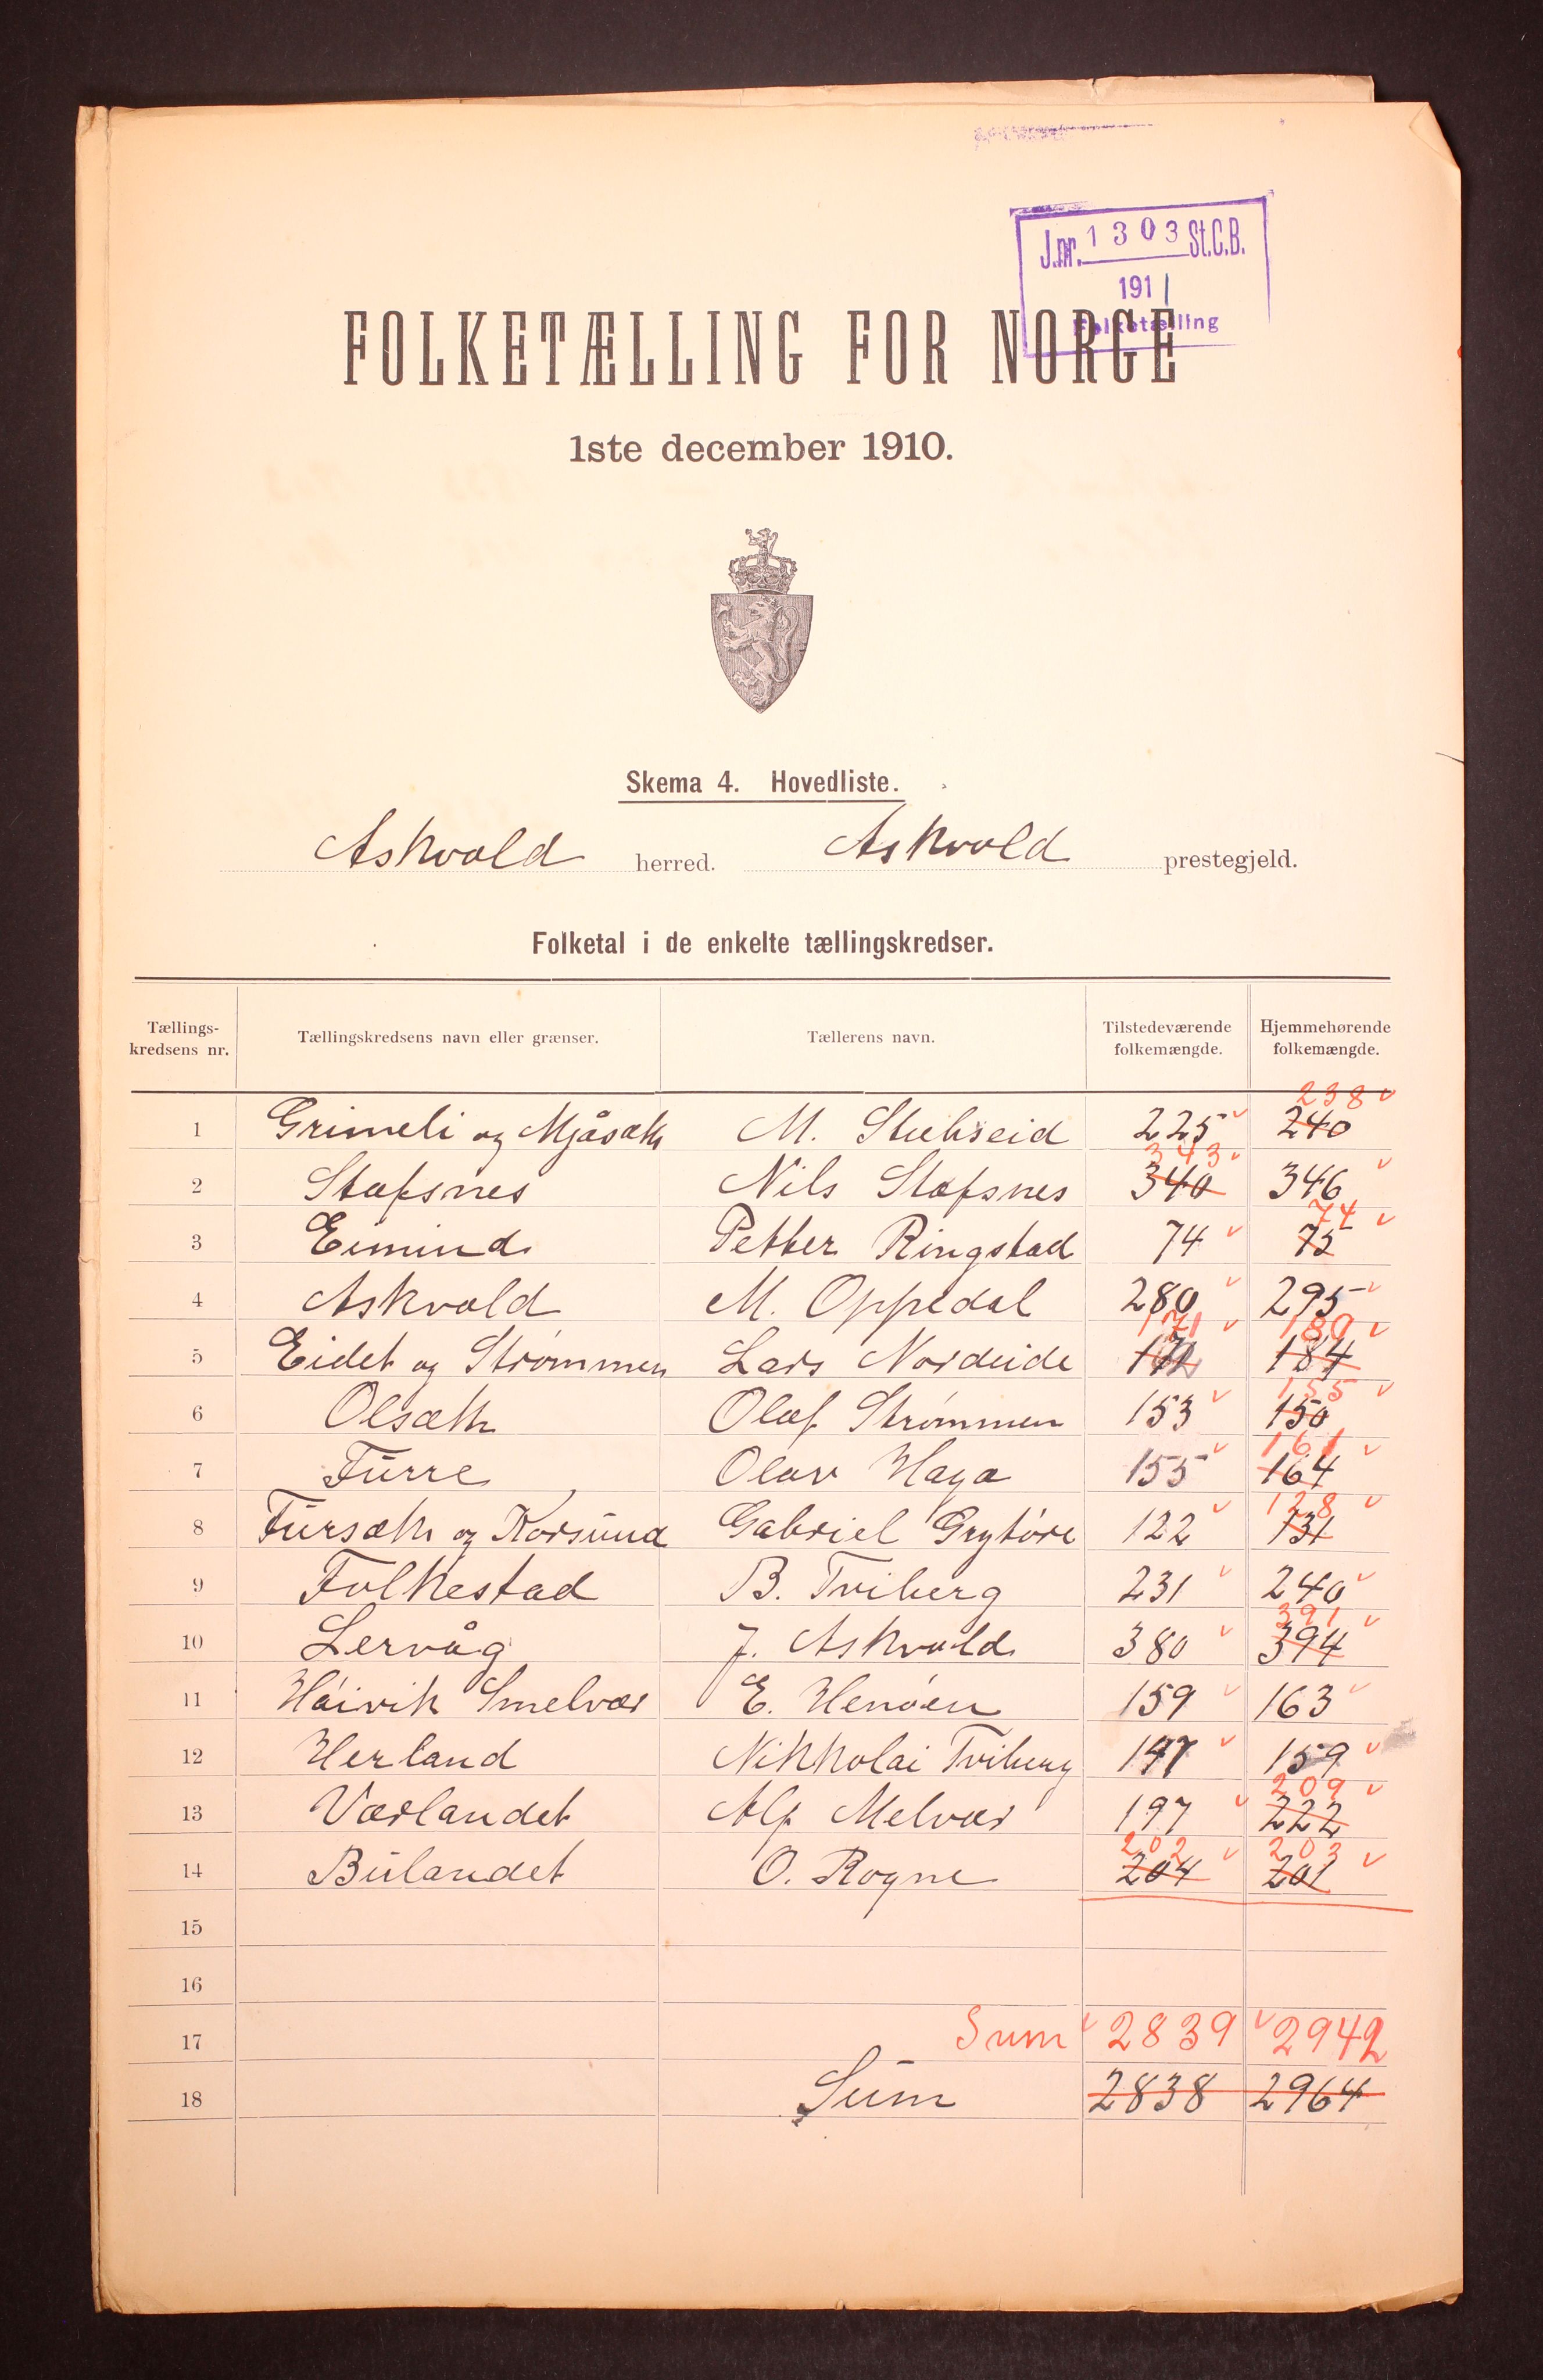 J.nr. 1303 St.C.B.
1911
Folketælling
FOLKETÆLLING FOR NORGE
1ste december 1910.
Skema 4. Hovedliste.
Askvold herred. Askvold prestegjeld.
Folketal i de enkelte tællingskredser.
Tællings-kredsens nr. Tællingskredsens navn eller grænser. Tællerens navn. Tilstedeværende folkemængde. Hjemmehørende folkemængde.
238
1 Grimeli og Mjåsæth M. Stubseid 225 240
343
2 Stafsnes Nils Stafsnes 340 346
74
3 Eimind Petter Ringstad 74 75
4 Askvold M. Oppedal 280 295
171 180
5 Eidet og Strømmen Lars Nordeide 184
155
6 Olsæth Olaf Strømmen 153 150
161
7 Furre Olav Haga 155 164
128
8 Fursæth og Korsund Gabriel Grytøre 122 131
9 Folkestad B. Tviberg 231 240
391
10 Lervåg J. Askvold 380 394
11 Høivik Smelvær E. Henøen 159 163
12 Herland Nikkolai Tviberg 147 159
209
13 Værlandet Alf Melvær 197 222
202 203
14 Bulandet O. Rogne 204 201
15
16
17 Sum 2839 2942
18 Sum 2838 2964